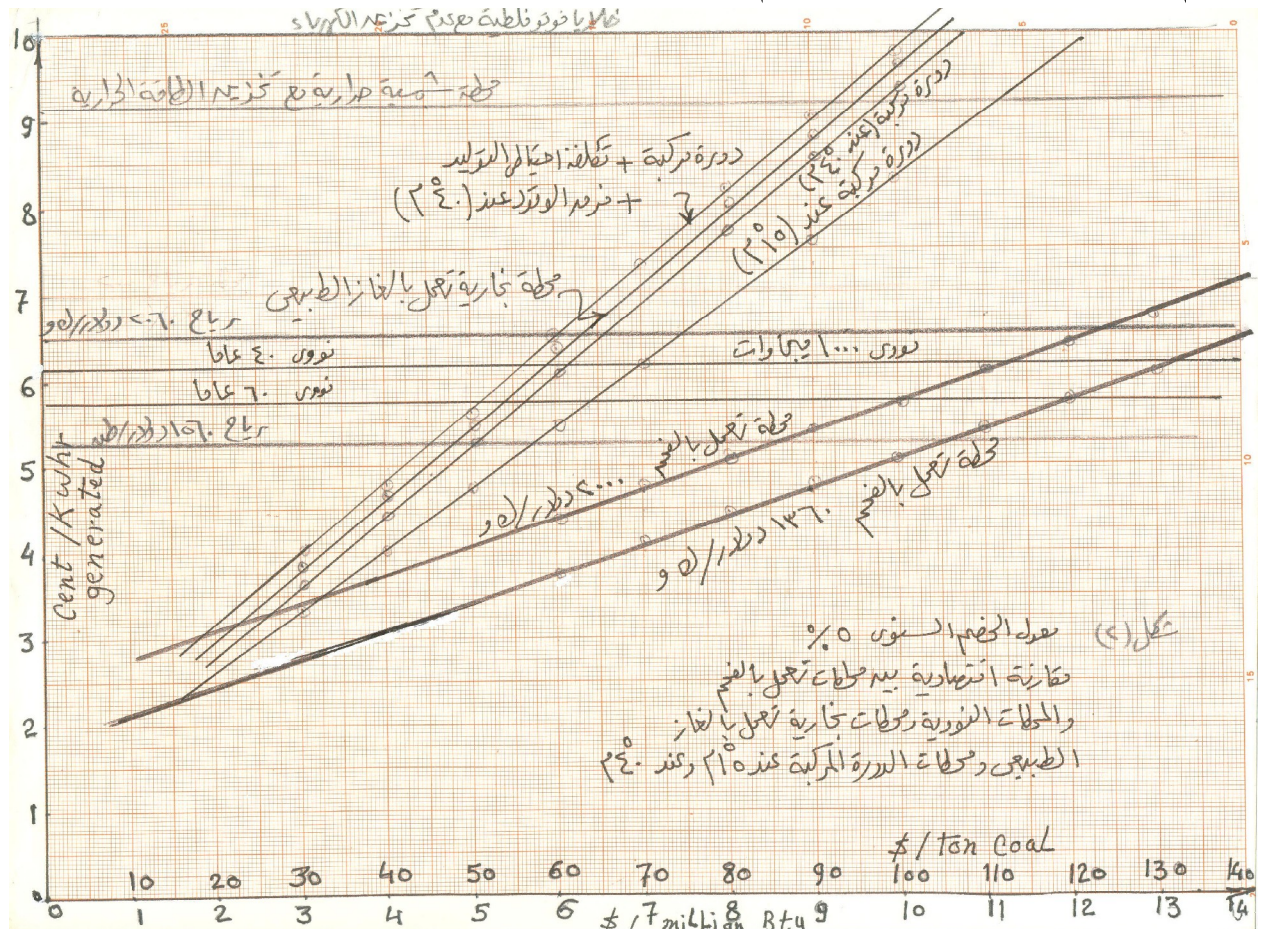 خلايا فوتوفلطية مع عدم تخزين الكهرباء
محطة شمسية حرارية مع تخزين الطاقة الحرارية
دورة مركبة + تكلفة احتياطى التوليد
+ فرصد الوقود عند (٤٠°م)
دورة مركبة (عند ٤٠°م)
دورة مركبة عند (١٥°م)
محطة بخارية تعمل بالغاز الطبيعى
رياح ٢٠٦٠ دولار/ك و
نووى ٤٠ عاما
نووى ١٠٠٠ ميجاوات
نووى ٦٠ عاما
رياح ١٥٦٠ دولار/
محطة تعمل بالفحم
٢٠٠٠ دولار/ك و
محطة تعمل بالفحم
١٣٦٠ دولار/ك و
شكل (٢) معدل الخصم السنوى ٥%
مقارنة اقتصادية بين محطات تعمل بالفحم
والمحطات النووية ومحطات بخارية تعمل بالغاز
الطبيعى ومحطات الدورة المركبة عند ١٥°م وعند ٤٠°م
Cent / Kwhr
generated
10
9
8
7
6
5
4
3
2
1
0
$ / Ton Coal
10 20 30 40 50 60 70 80 90 100 110 120 130 140
0 1 2 3 4 5 6 7 8 9 10 11 12 13 14
$ / million Btu
25 10 5 0
5
10
15